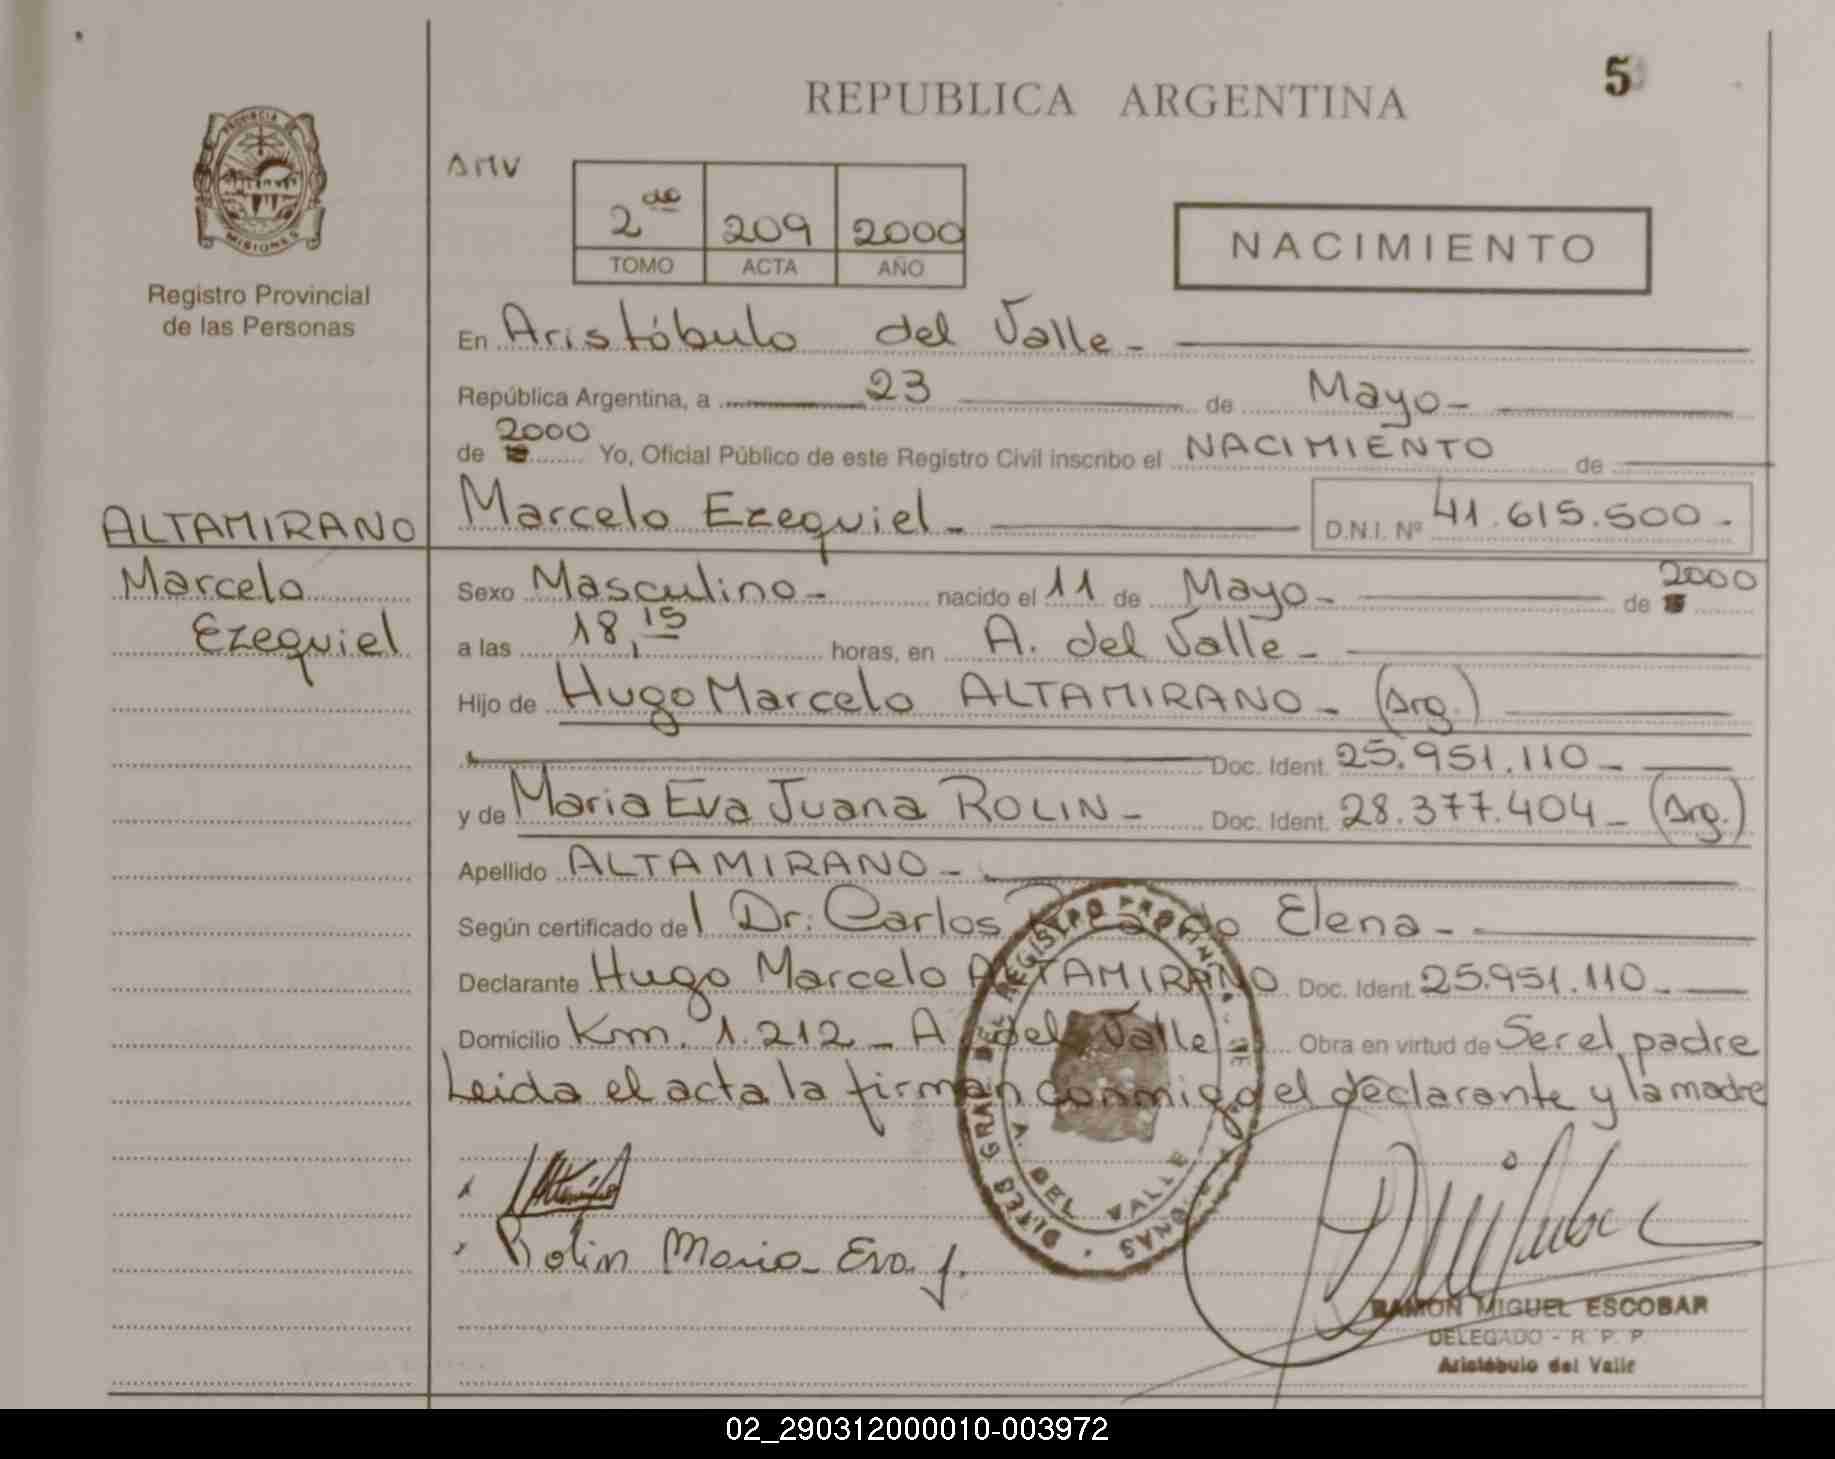 REPUBLICA ARGENTINA
5
PROVINCIA DE
MISIONES
Registro Provincial
de las Personas
AMV
2do 209 2000
TOMO ACTA AÑO
NACIMIENTO
En Aristóbulo del Valle -
República Argentina, a 23 de Mayo -
de 2000 Yo, Oficial Público de este Registro Civil inscribo el NACIMIENTO de
Marcelo Ezequiel - D.N.I. Nº 41.615.500 -
ALTAMIRANO
Marcelo
Ezequiel
Sexo Masculino - nacido el 11 de Mayo - de 2000
a las 18,15 horas, en A. del Valle -
Hijo de Hugo Marcelo ALTAMIRANO - (Arg.)
Doc. Ident. 25.951.110 -
y de Maria Eva Juana ROLIN - Doc. Ident. 28.377.404 - (Arg.)
Apellido ALTAMIRANO -
Según certificado del Dr: Carlos Ricardo Elena -
Declarante Hugo Marcelo ALTAMIRANO Doc. Ident. 25.951.110 -
Domicilio Km. 1.212 - A. del Valle - Obra en virtud de Ser el padre
Leida el acta la firman conmigo el declarante y la madre
A. DEL VALLE
Rolin Maria Eva J.
RAMON MIGUEL ESCOBAR
DELEGADO - R. P. P.
Aristóbulo del Valle
02_290312000010-003972